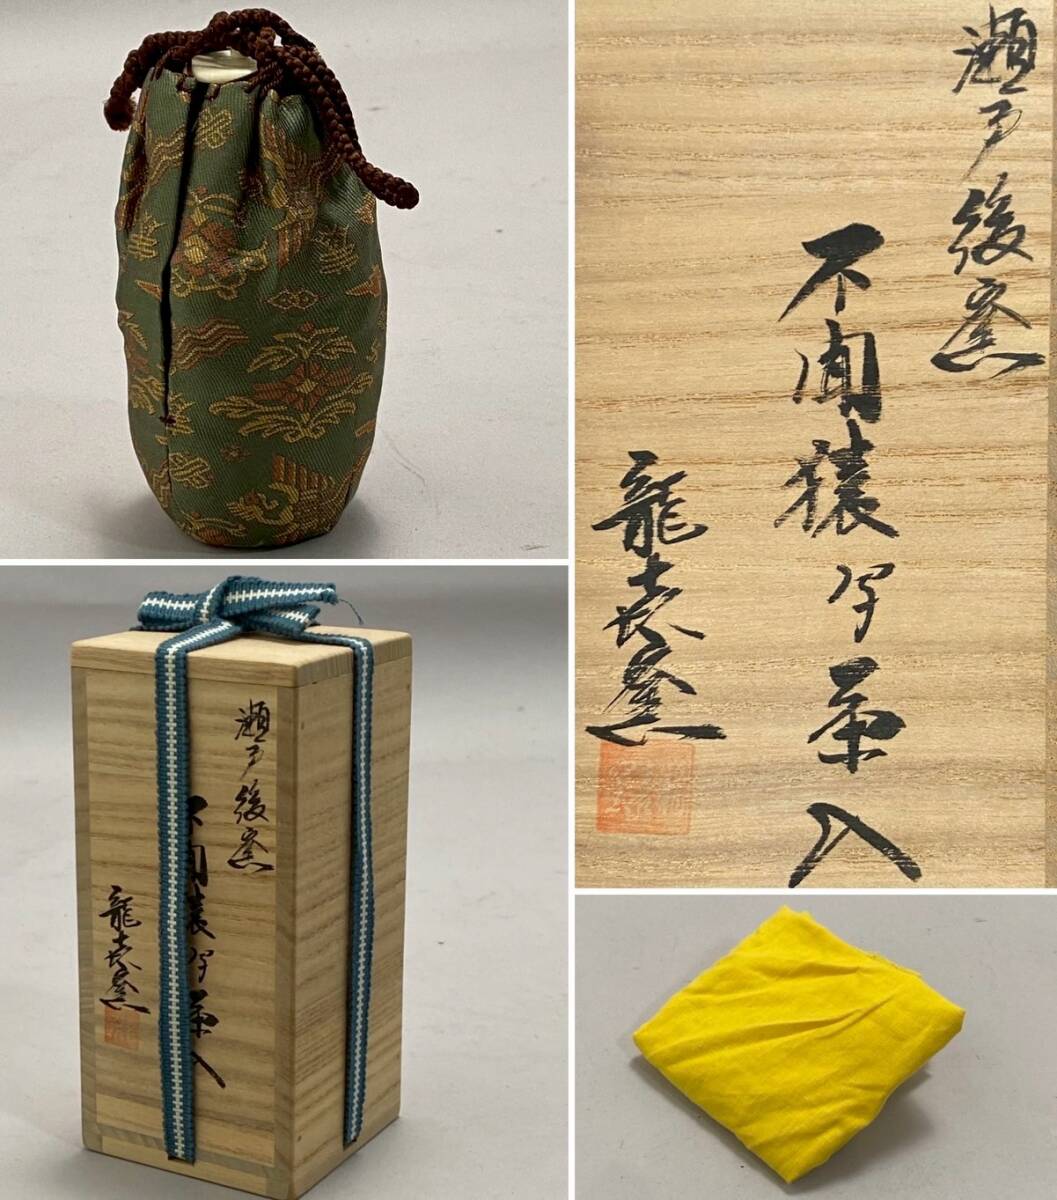 瀬戸後窯
不聞猿写茶入
龍喜窯
瀬戸後窯
不聞猿写茶入
龍喜窯